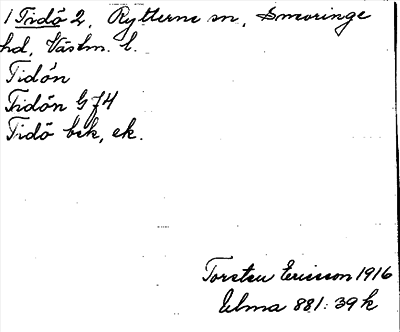 1 Tidö 2, Rytterne sn, Snevringe
hd, Västm. l.
Tidön
Tidön G 74
Tidö bek, ek.
Torsten Ericsson 1916
Uma 881: 39 k